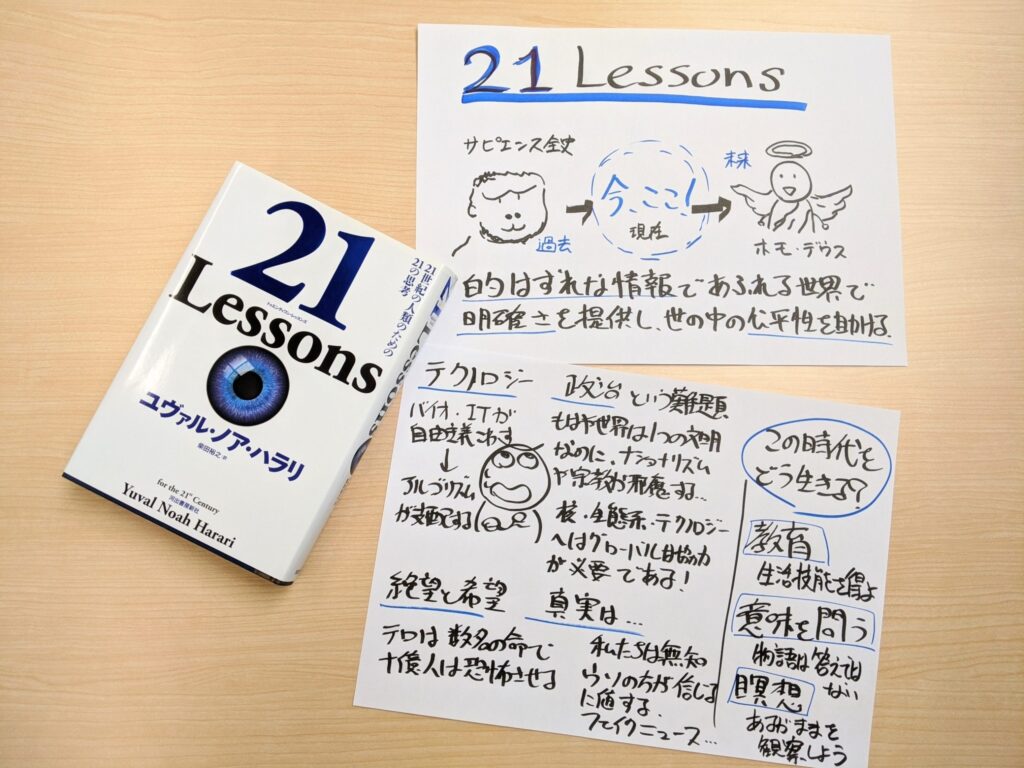 21
Lessons
21世紀の人類のための
21の思考
ユヴァル・ノア・ハラリ
柴田裕之 訳
for the 21st Century
河出書房新社
Yuval Noah Harari
21 Lessons
サピエンス全史
過去
今、ここ!
現在
未来
ホモ・デウス
的はずれな情報であふれる世界で
明確さを提供し、世の中の公平性を助ける。
テクノロジー
バイオ・ITが
自由主義こわす
↓
アルゴリズム
が支配する
政治という難題
もはや世界は1つの文明
なのに、ナショナリズム
や宗教が邪魔する…
核・生態系・テクノロジー
へはグローバルな協力
が必要である!
絶望と希望
テロは数名の命で
十億人は恐怖させる
真実は…
私たちは無知
ウソの方が信じる
に値する.
フェイクニュース…
この時代を
どう生きる?
教育
生活技能を得よ
意味を問う
物語は答えでは
ない
瞑想
あるがままを
観察しよう